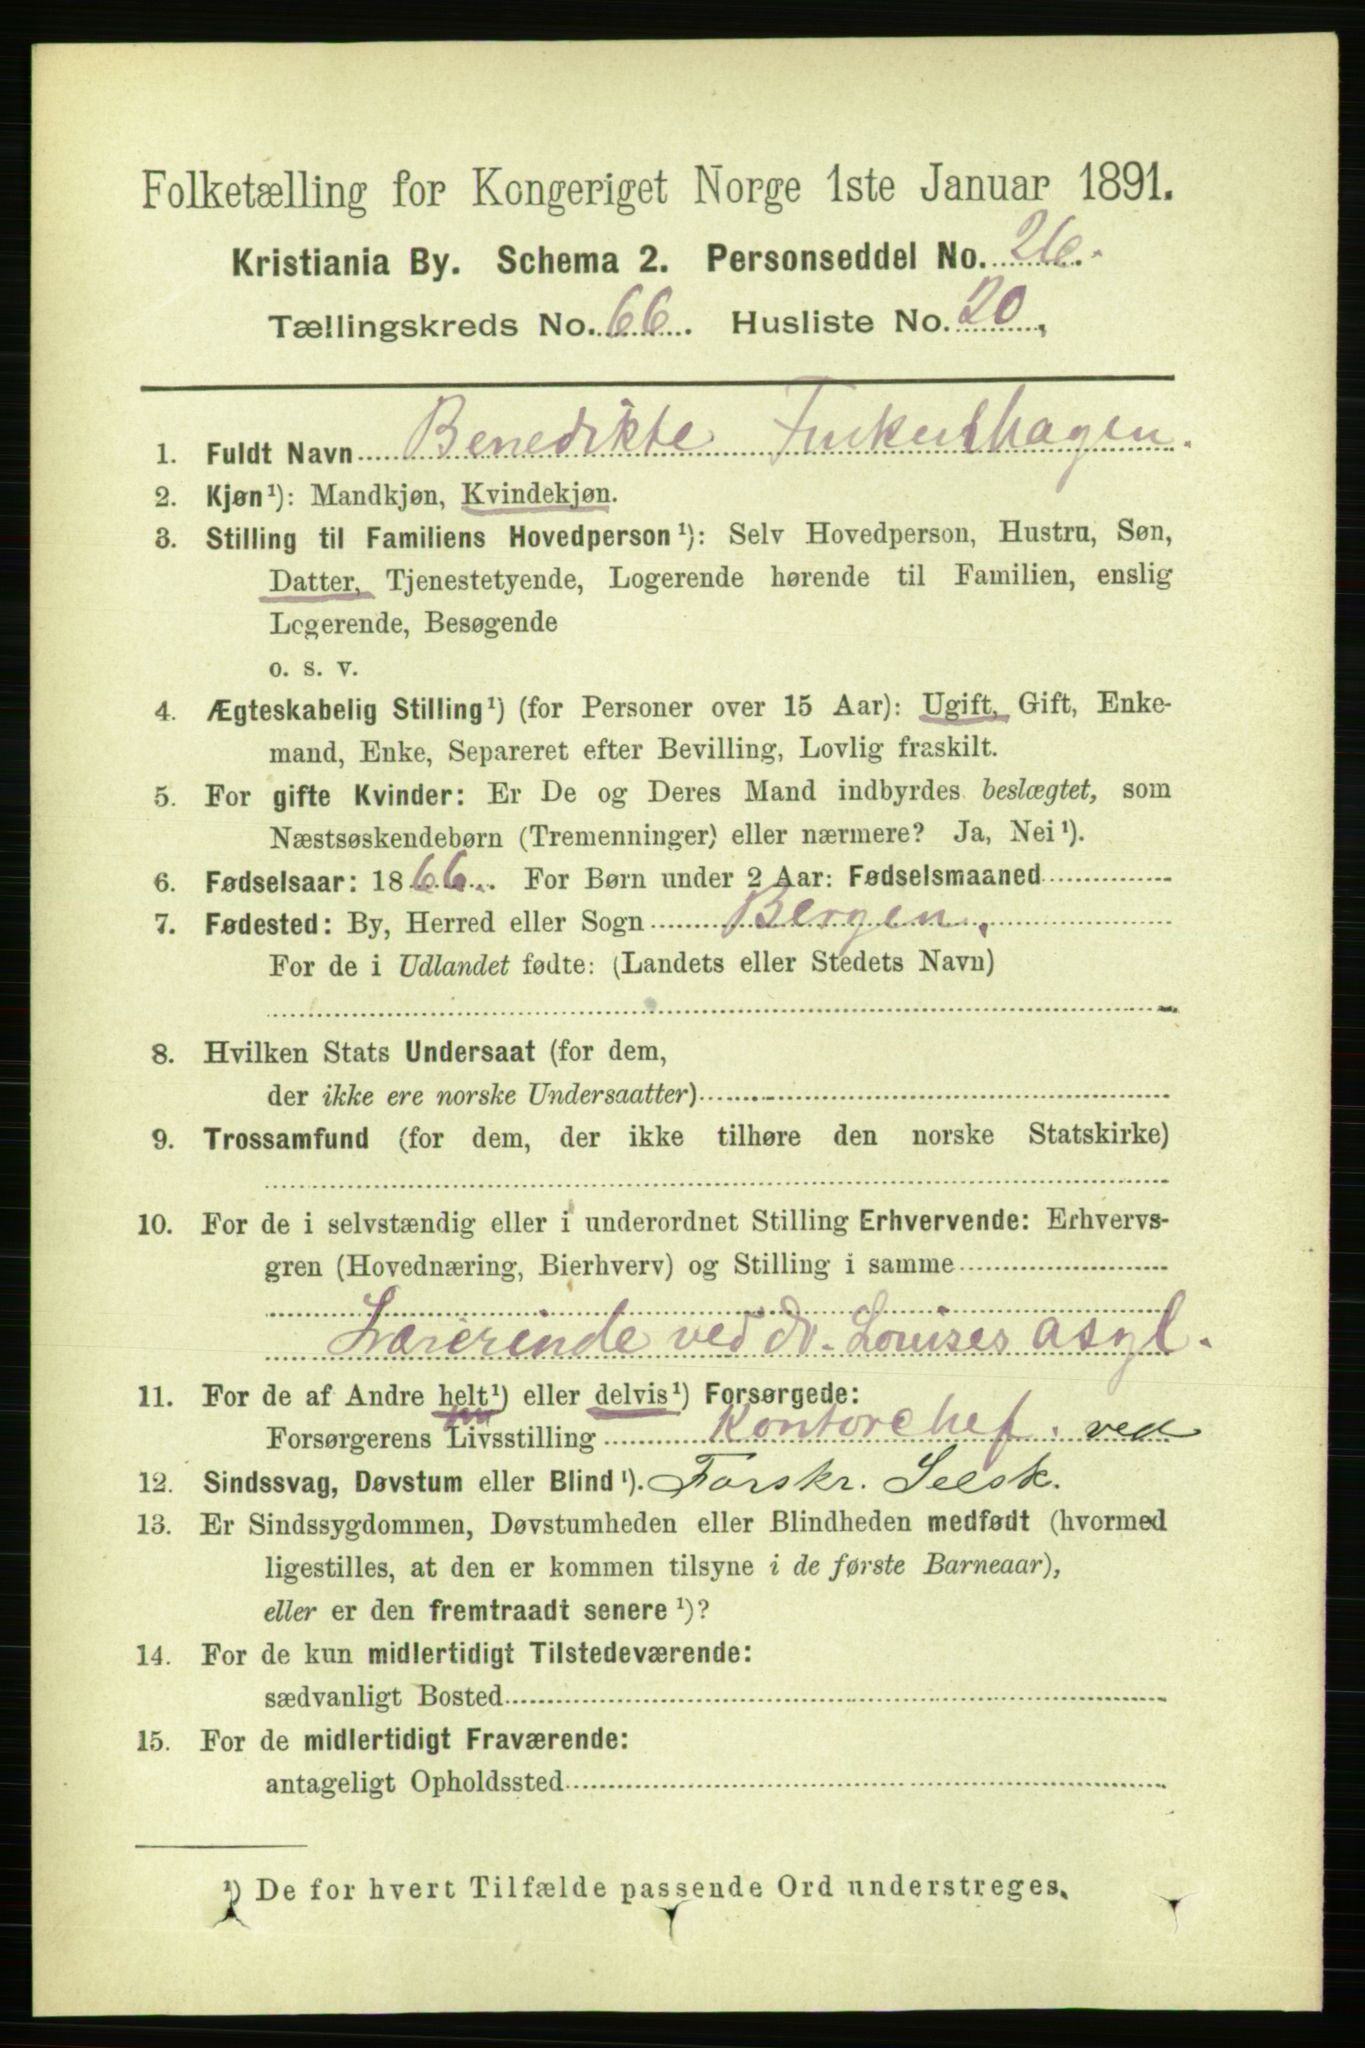 Folketælling for Kongeriget Norge 1ste Januar 1891.
Kristiania By. Schema 2. Personseddel No. 26.
Tællingskreds No. 66. Husliste No. 20,
1. Fuldt Navn Benedikte Finkenhagen.
2. Kjøn¹): Mandkjøn, Kvindekjøn.
3. Stilling til Familiens Hovedperson¹): Selv Hovedperson, Hustru, Søn,
Datter, Tjenestetyende, Logerende hørende til Familien, enslig
Logerende, Besøgende
o. s. v.
4. Ægteskabelig Stilling¹) (for Personer over 15 Aar): Ugift, Gift, Enke-
mand, Enke, Separeret efter Bevilling, Lovlig fraskilt.
5. For gifte Kvinder: Er De og Deres Mand indbyrdes beslægtet, som
Næstsøskendebørn (Tremenninger) eller nærmere? Ja, Nei¹).
6. Fødselsaar: 1866. For Børn under 2 Aar: Fødselsmaaned
7. Fødested: By, Herred eller Sogn Bergen.
For de i Udlandet fødte: (Landets eller Stedets Navn)
8. Hvilken Stats Undersaat (for dem,
der ikke ere norske Undersaatter)
9. Trossamfund (for dem, der ikke tilhøre den norske Statskirke)
10. For de i selvstændig eller i underordnet Stilling Erhvervende: Erhvervs-
gren (Hovednæring, Bierhverv) og Stilling i samme
Lærerinde ved dr. Louises asyl.
11. For de af Andre helt¹) eller delvis¹) Forsørgede:
Forsørgerens Livsstilling Kontorchef. ved
12. Sindssvag, Døvstum eller Blind¹). Forskr. Selsk.
13. Er Sindssygdommen, Døvstumheden eller Blindheden medfødt (hvormed
ligestilles, at den er kommen tilsyne i de første Barneaar),
eller er den fremtraadt senere¹)?
14. For de kun midlertidigt Tilstedeværende:
sædvanligt Bosted
15. For de midlertidigt Fraværende:
antageligt Opholdssted
¹) De for hvert Tilfælde passende Ord understreges.